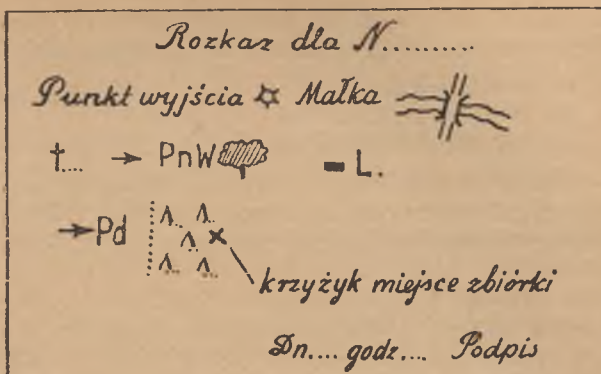 Rozkaz dla N..........
Punkt wyjścia Małka
t.... → PnW L.
→ Pd
krzyżyk miejsce zbiórki
Dn.... godz.... Podpis